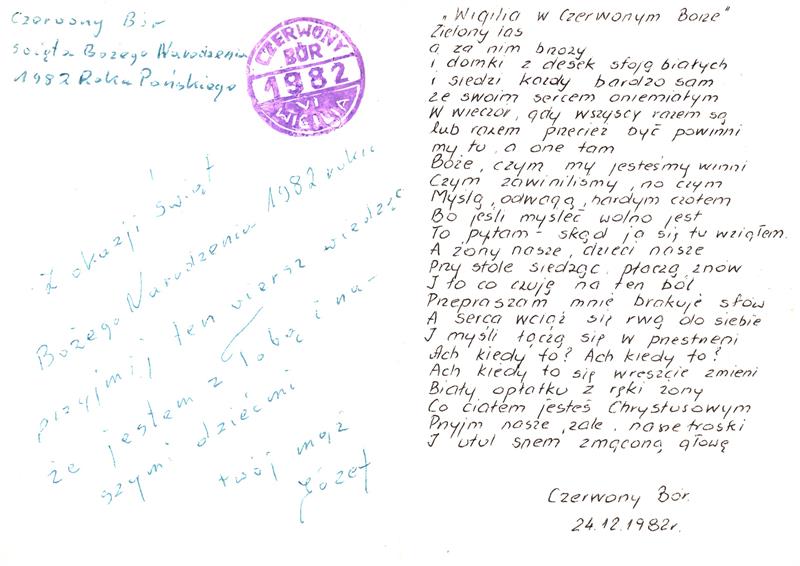 Czerwony Bór
święta Bożego Narodzenia
1982 Roku Pańskiego
CZERWONY
BÓR
1982
VI
WIGILIA
Z okazji świąt
Bożego Narodzenia 1982 roku
przyjmij ten wiersz wiedząc
że jestem z Tobą i na-
szymi dziećmi
twój mąż
Józef
„Wigilia w Czerwonym Borze"
Zielony las
a za nim brzozy
i domki z desek stoją białych
i siedzi każdy bardzo sam
ze swoim sercem oniemiałym
W wieczór, gdy wszyscy razem są
lub razem przecież być powinni
my tu, a one tam
Boże, czym my jesteśmy winni
Czym zawiniliśmy, no czym
Myślą, odwagą, hardym czołem
Bo jeśli myśleć wolno jest
To pytam - skąd ja się tu wziąłem.
A żony nasze, dzieci nasze
Przy stole siedząc, płaczą znów
I to co czuję na ten ból
Przepraszam mnie brakuje słów
A serca wciąż się rwą do siebie
I myśli łączą się w pnestneni
Ach kiedy to? Ach kiedy to?
Ach kiedy to się wreszcie zmieni
Biały opłatku z ręki żony
Co ciałem jesteś Chrystusowym
Pnyjm nasze żale, nasze troski
I utul snem zmąconą głowę
Czerwony Bór.
24.12.1982r.